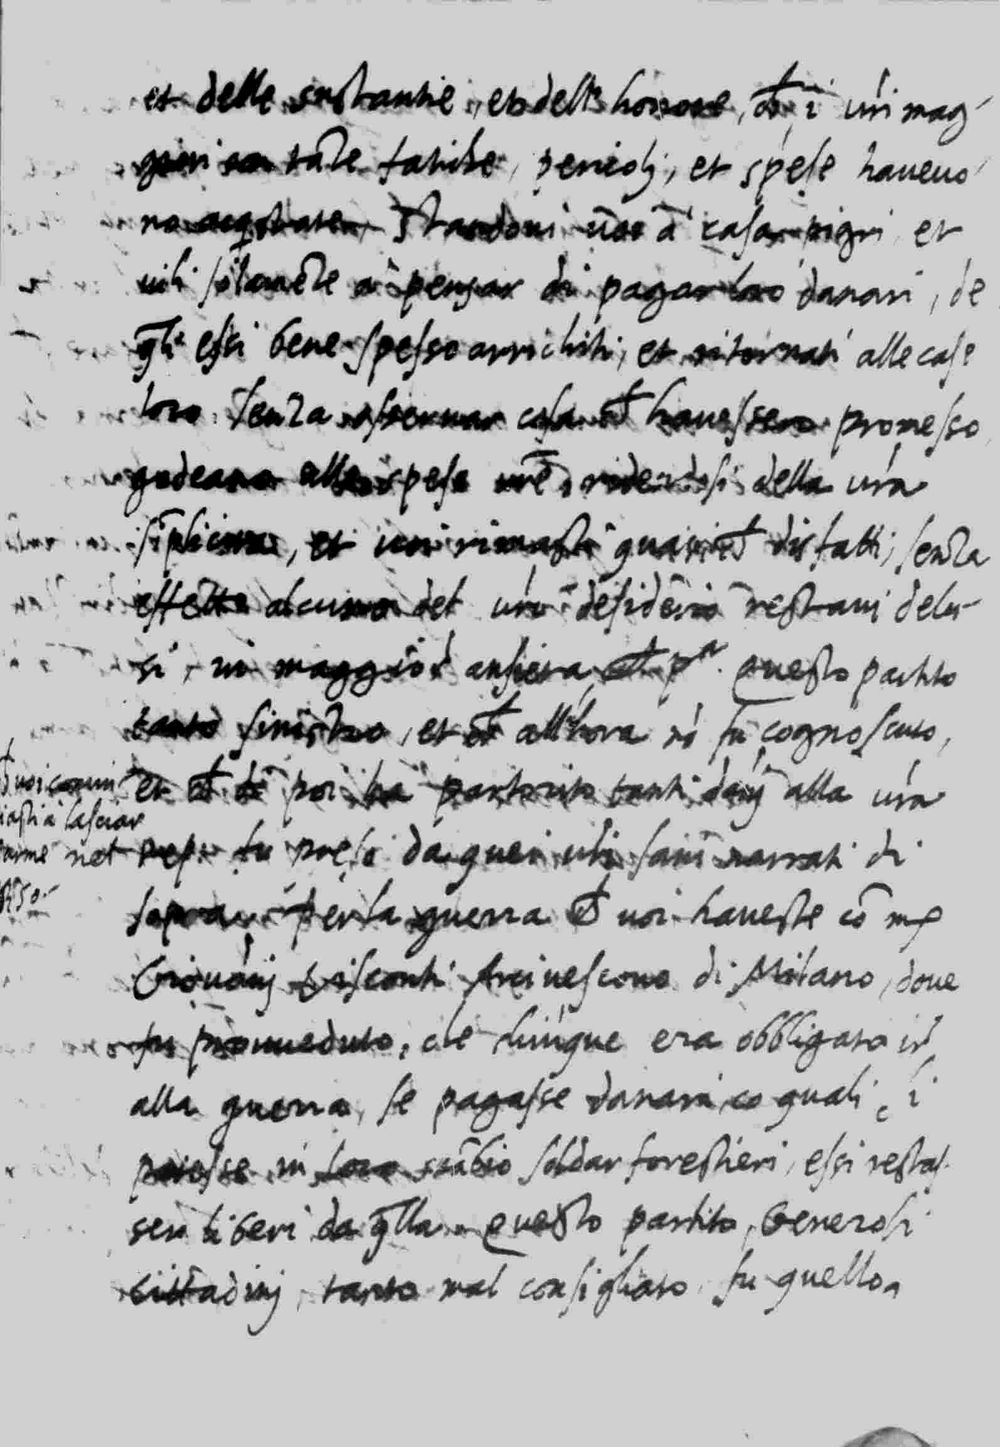 et delle sustantie, et dell'honore, ch' i vri mag-
giori con tāte fatiche, pericolj, et spese haveuo-
no acqstate, standoui uoi à casa pigri, et
uili solamēte à pensar di pagar loro danari, de
qli essi bene spesso arrichiti, et ritornati alle case
loro senza osseruar cosa ch' hauessero promesso
godeano alle spese vrē, ridendosi della vrā
siplicita, et uoi rimasti quasi ch' disfatti, senza
effetto alcuno del vrō desiderio restaui delu-
si, in maggior ansieta ch' pa. Questo partito
tanto sinistro, et ch' all'hora nō fu cognosciuto,
et ch' da poi ha partorito tanti danj alla vrā
rep. fu preso da quei uli sani narrati di
sopra per la guerra ch' uoi haueste cō mr
Giouānj Visconti Arciuescouo di Milano, doue
fu proueduto, che chiūque era obbligato ir
alla guerra, se pagasse danari, co quali si
potesse in loro scābio soldar forestieri, essi restas-
sero liberi da qlla. Questo partito, Generosi
Cittadinj, tanto mal consigliato fu quello,
ch' uoi comin
iasti à lasciar
l'arme nel